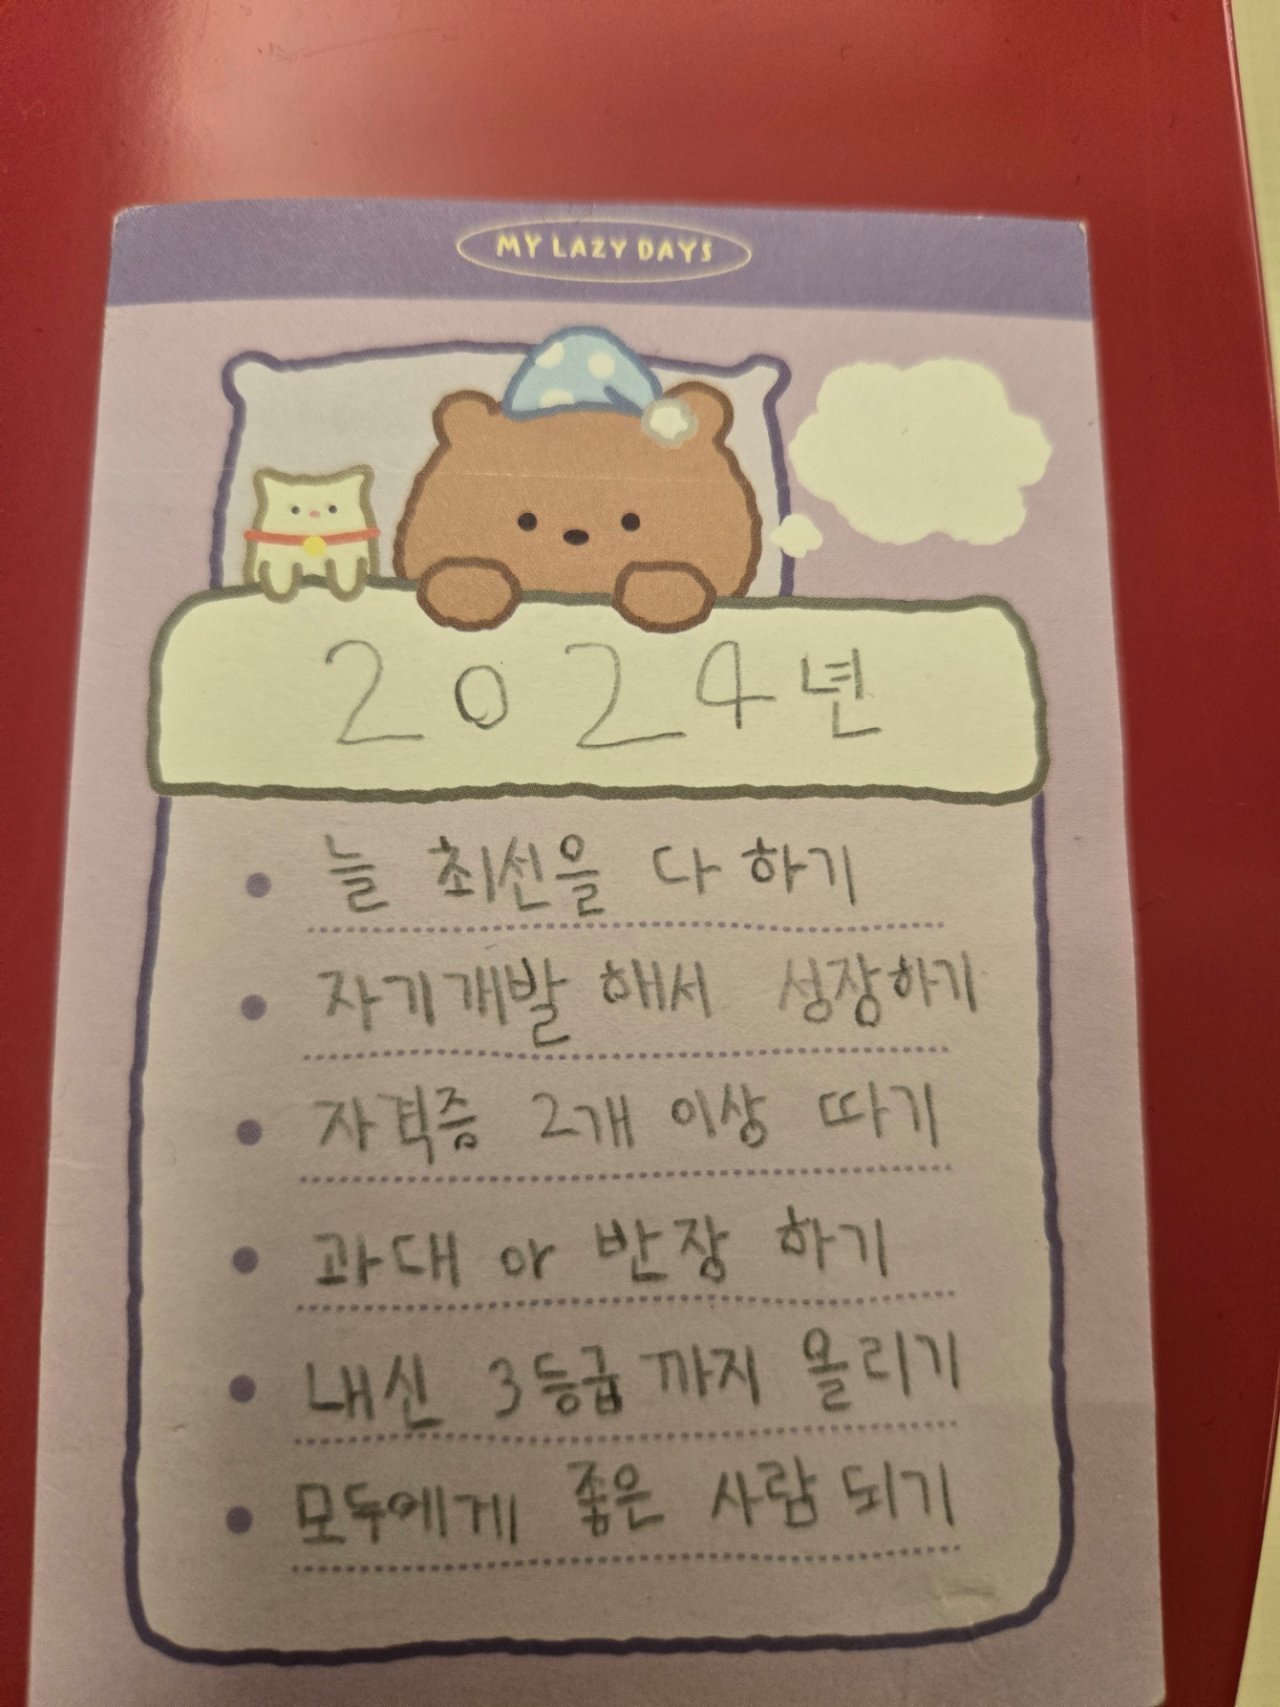 MY LAZY DAYS
2024년
늘 최선을 다 하기
자기개발 해서 성장하기
자격증 2개 이상 따기
과대 아 반장 하기
내신 3등급까지 올리기
모두에게 좋은 사람 되기